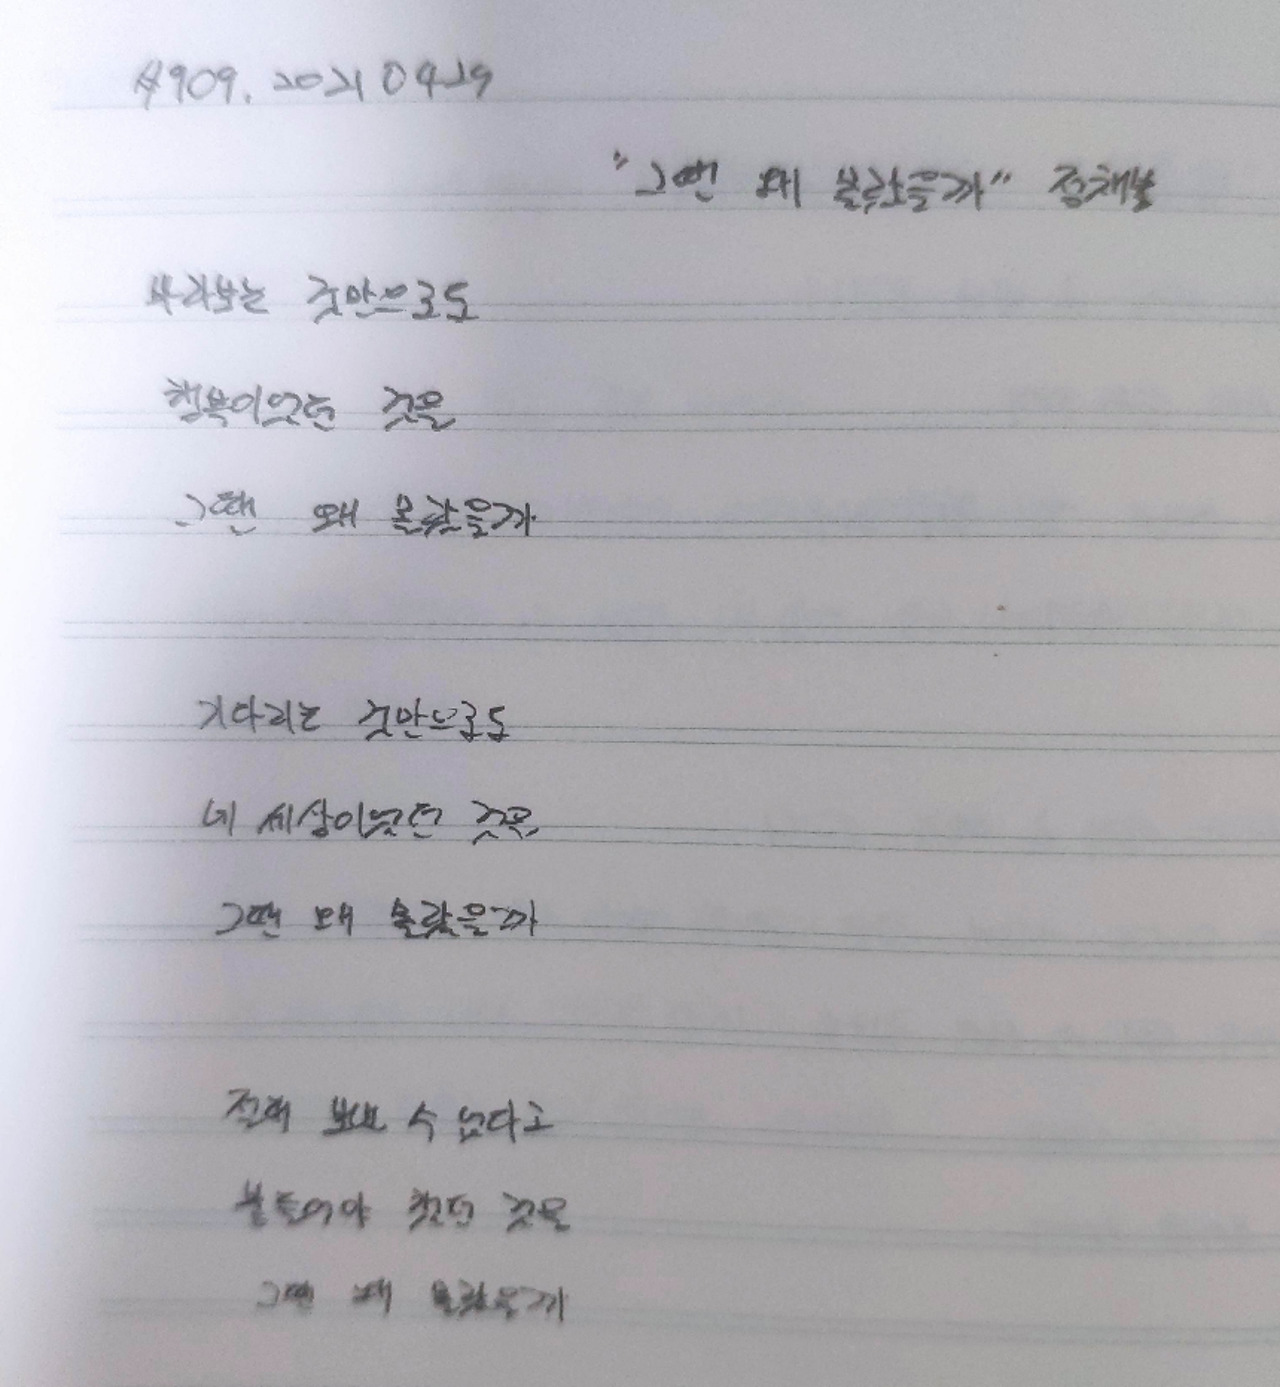 #909. 20210429
"그땐 왜 몰랐을까" 정채봉
바라보는 것만으로도
행복이었던 것을
그땐 왜 몰랐을까
기다리는 것만으로도
네 세상이었던 것을
그땐 왜 몰랐을까
절대 보낼 수 없다고
붙들어야 했던 것을
그땐 왜 몰랐을까